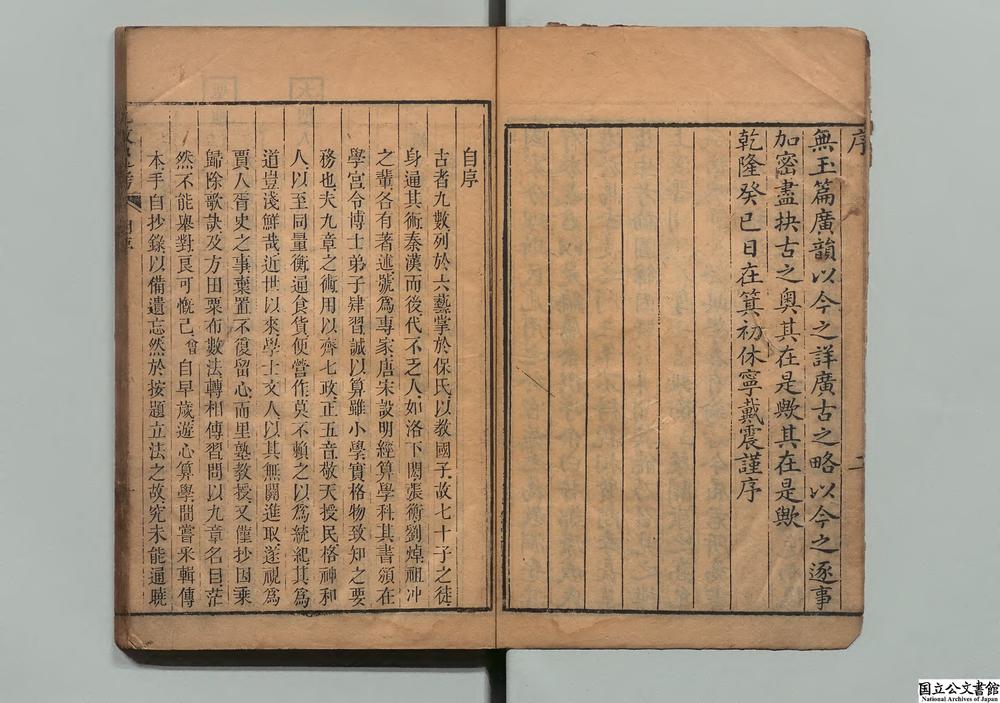 序
無玉篇廣韻以今之詳廣古之略以今之逐事
加密盡抉古之奥其在是歟其在是歟
乾隆癸巳日在箕初休寧戴震謹序
二
自序
古者九數列於六藝掌於保氏以教國子故七十子之徒
身通其術秦漢而後代不乏人如洛下閎張衡劉焯祖冲
之輩各有著述號爲專家唐宋設明經算學科其書頒在
學宮令博士弟子肄習誠以算雖小學實格物致知之要
務也夫九章之術用以齊七政正五音敬天授民格神和
人以至同量衡通食貨便營作莫不賴之以爲統紀其爲
道豈淺鮮哉近世以來學士文人以其無關進取遂視爲
賈人胥史之事棄置不復留心而里塾教授又僅抄因乘
歸除歌訣及方田粟布數法轉相傳習問以九章名目茫
然不能舉對良可慨已曾自早歲遊心算學間嘗采輯傳
本手自抄錄以備遺忘然於按題立法之故究未能通曉
国立公文書館
National Archives of Japan